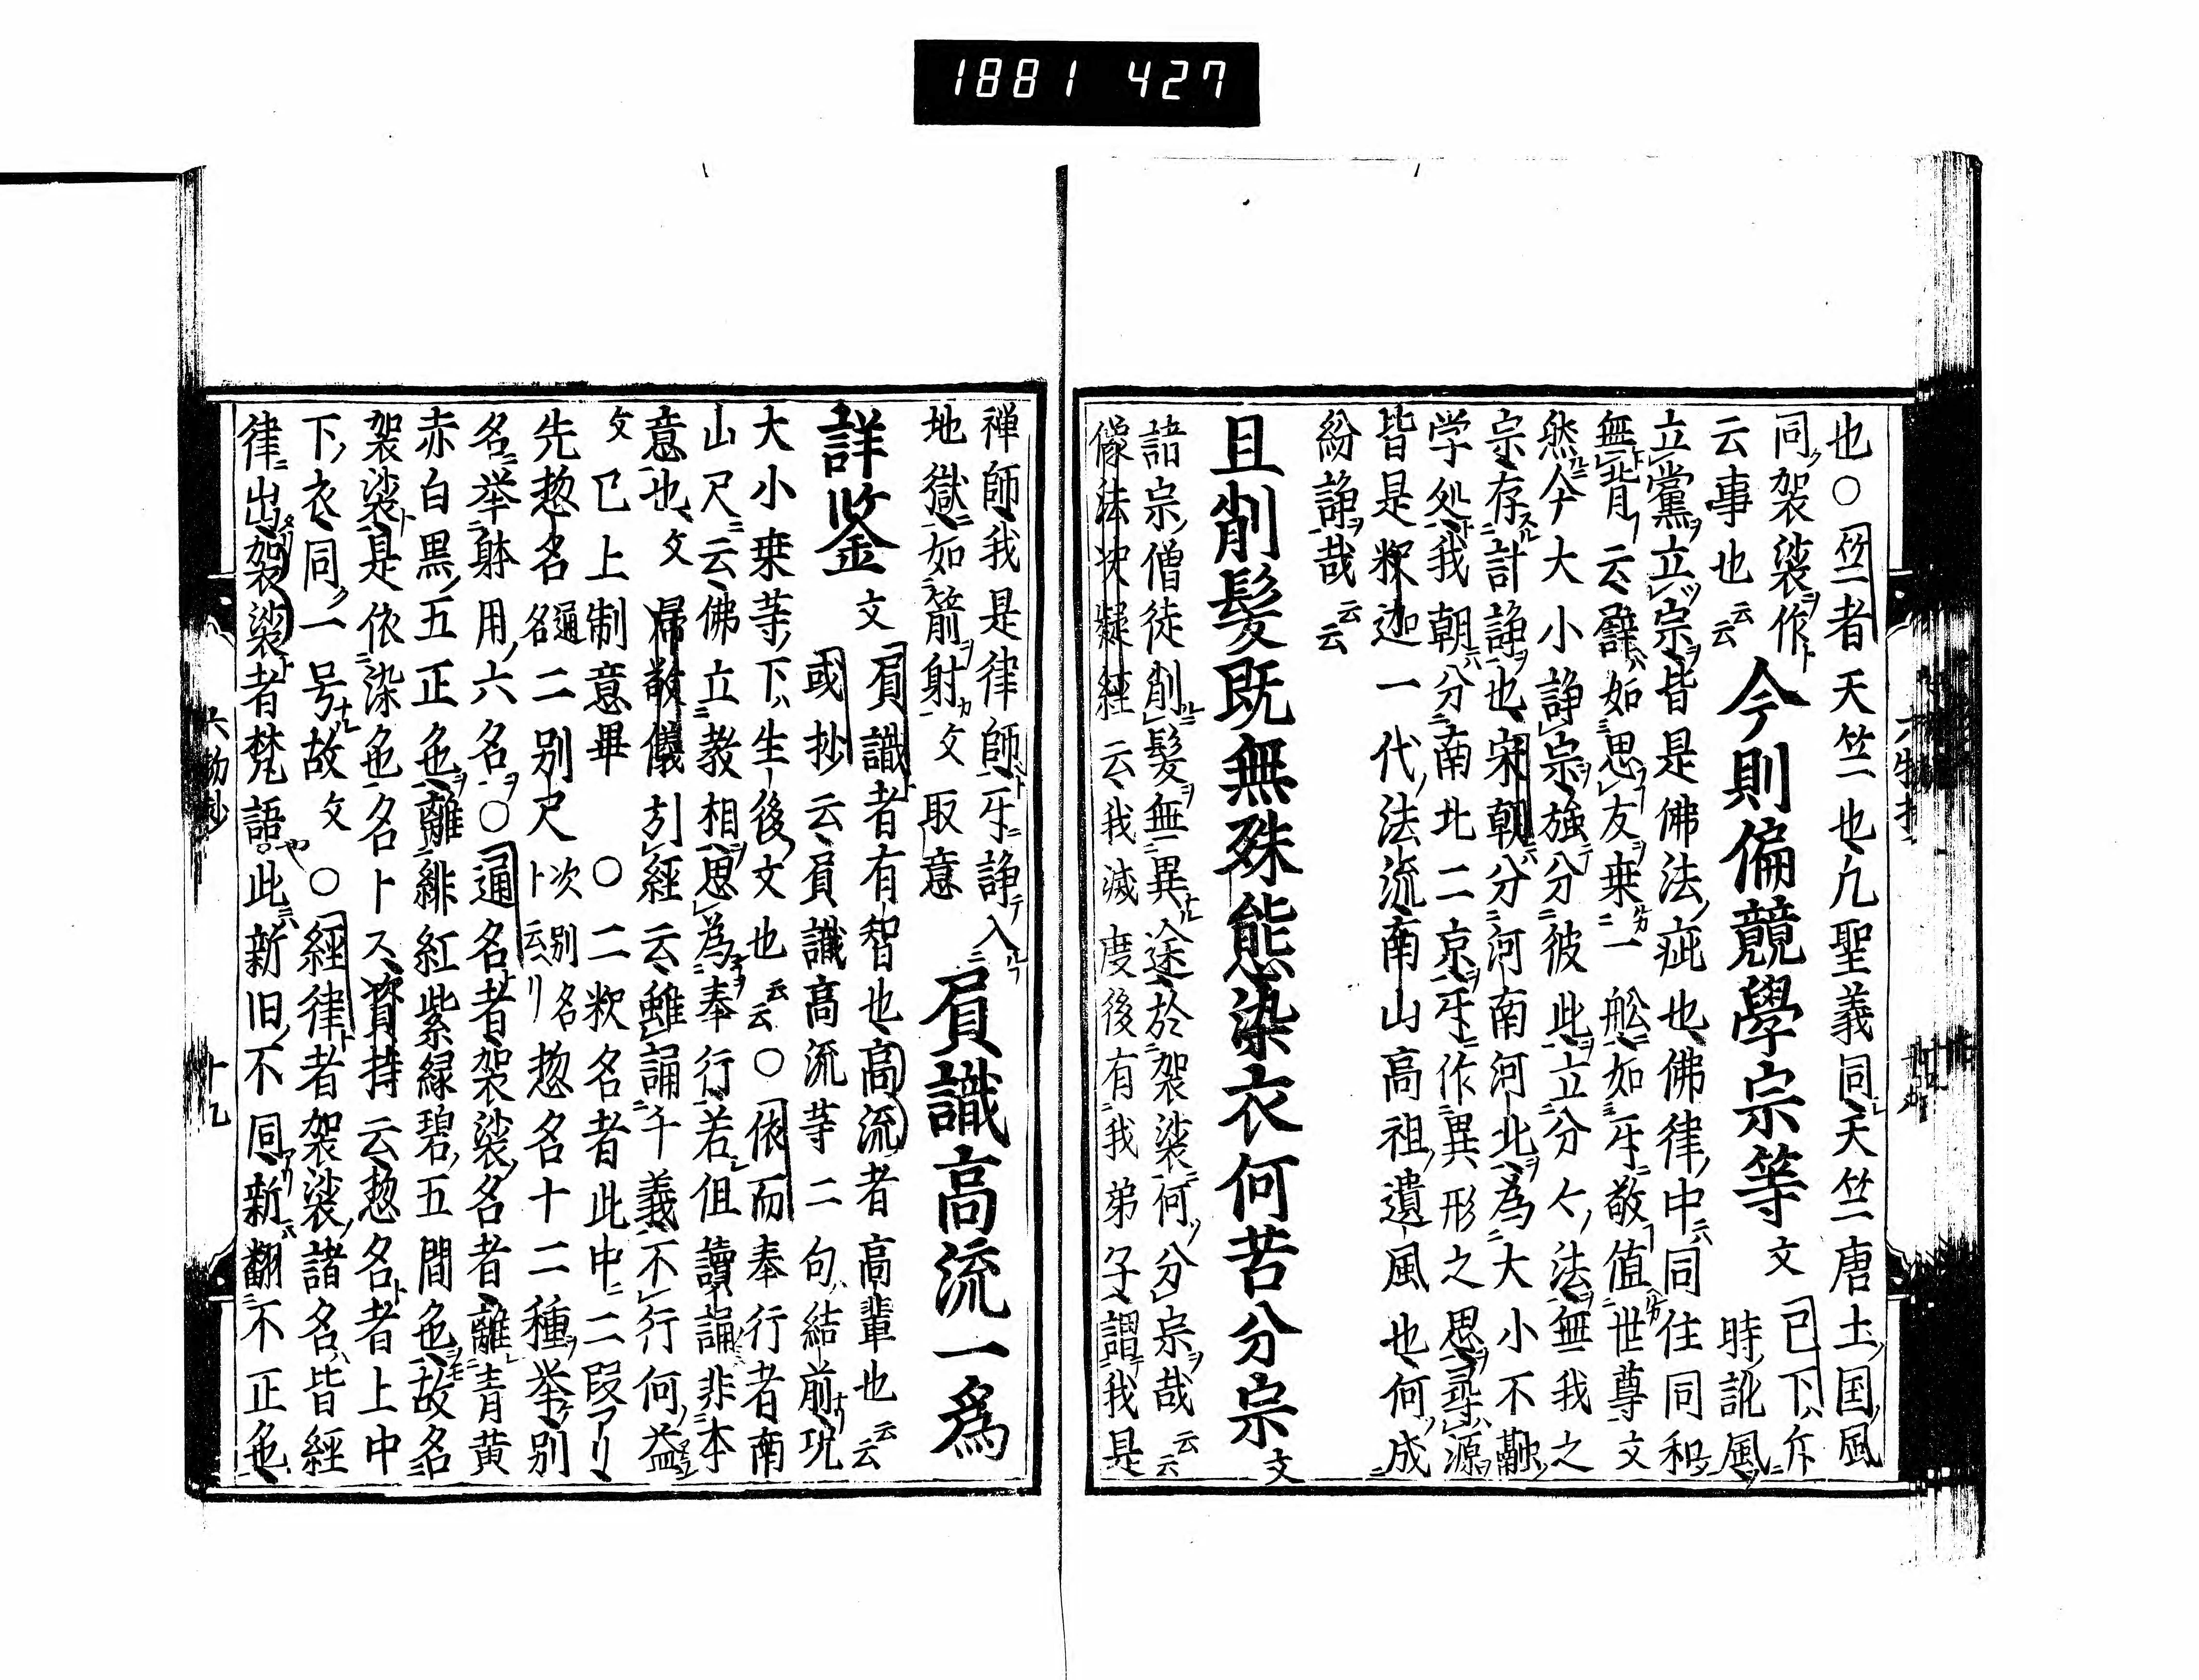 1881 427
也○竺者天竺也凢聖義同天竺唐土国風
同袈裟作
云事也云云
今則偏競學宗等文
已下斥
時訛風
立黨立宗皆是佛法疵也佛律中同住同和
無背云譬如思友乗一舩如牙敬値世尊文
然今大小諍宗強分彼此立分人法無我之
宗存計諍也宋朝分河南河北為大小不融
学処我朝分南北二京牙作異形之思尋源
皆是釈迦一代法流南山高祖遺風也何成
紛諍哉云云
且削髪既無殊態染衣何苦分宗文
諸宗僧徒削髪無異途於袈裟何分宗哉云云
像法決疑経云我滅度後有我弟子謂我是
禅師我是律師牙諍入
地獄如箭射文取意
肩識高流一爲
詳鉴文
肩識者有智也高流者高輩也云云
或抄云肩識高流等二句結前
大小乗等下生後文也云云○依而奉行者南
山尺云佛立教相思為奉行若但讀誦非本
意也文帰敬儀引経云雖誦千義不行何益
文已上制意畢○二釈名者此中二叚アリ
先惣名通名二別尺次別名ト云リ惣名十二種挙別
名挙躰用六名○通名者袈裟名者離青黄
赤白黒五正色離緋紅紫緑碧五間色故名
袈裟是依染色名トス資持云惣名者上中
下衣同一号故文○経律者袈裟諸名皆経
律出袈裟者梵語此新旧不同新翻不正色
六物抄
十九